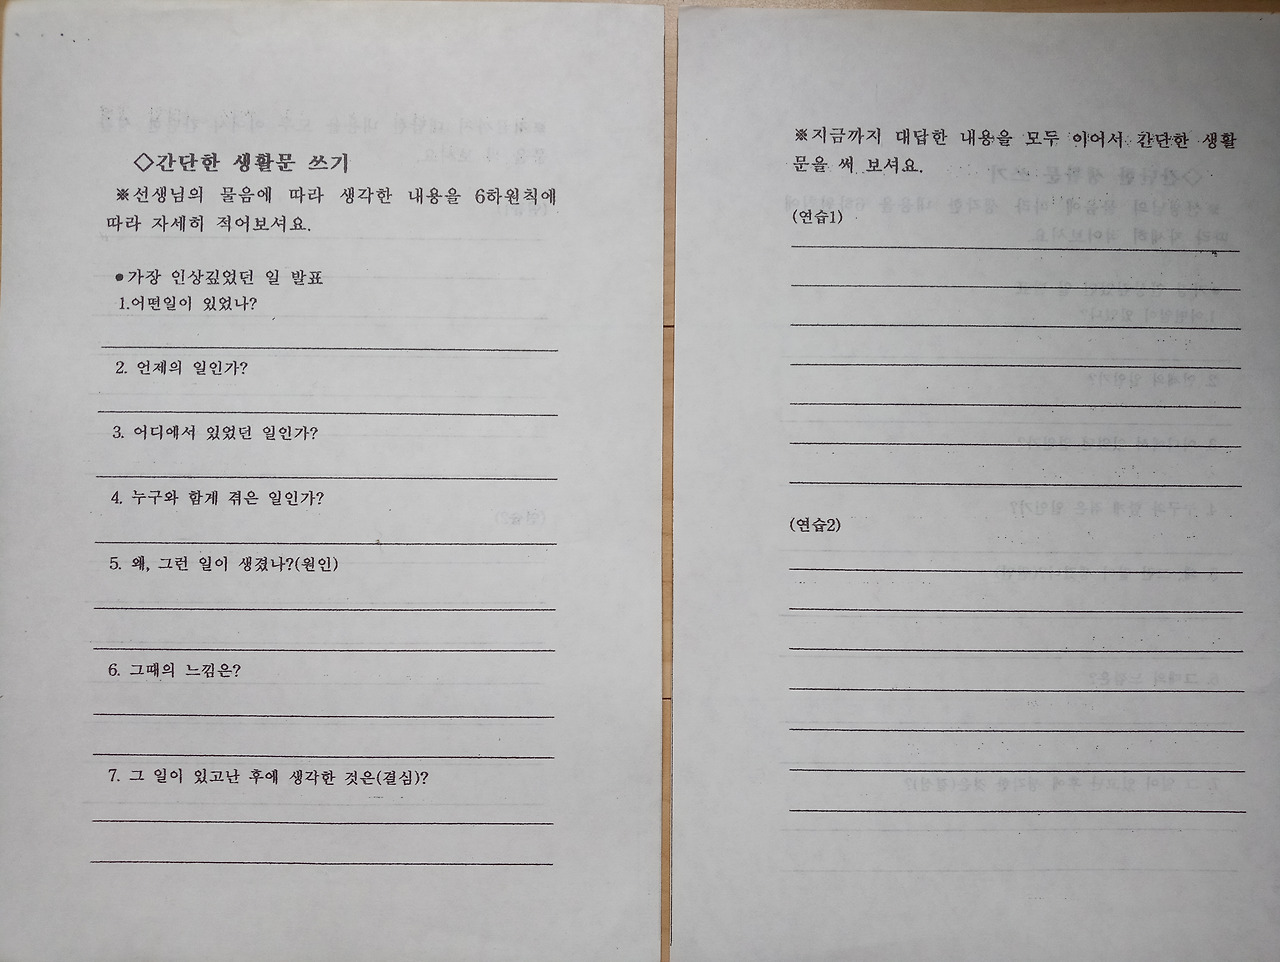 ◇간단한 생활문 쓰기
※선생님의 물음에 따라 생각한 내용을 6하원칙에
따라 자세히 적어보셔요.
●가장 인상깊었던 일 발표
1.어떤일이 있었나?
2. 언제의 일인가?
3. 어디에서 있었던 일인가?
4. 누구와 함게 겪은 일인가?
5. 왜, 그런 일이 생겼나?(원인)
6. 그때의 느낌은?
7. 그 일이 있고난 후에 생각한 것은(결심)?
※지금까지 대답한 내용을 모두 이어서 간단한 생활
문을 써 보셔요.
(연습1)
(연습2)